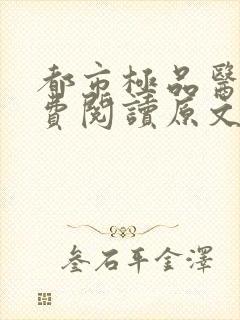 都市極品醫
費閱讀原文
叁石平金澤